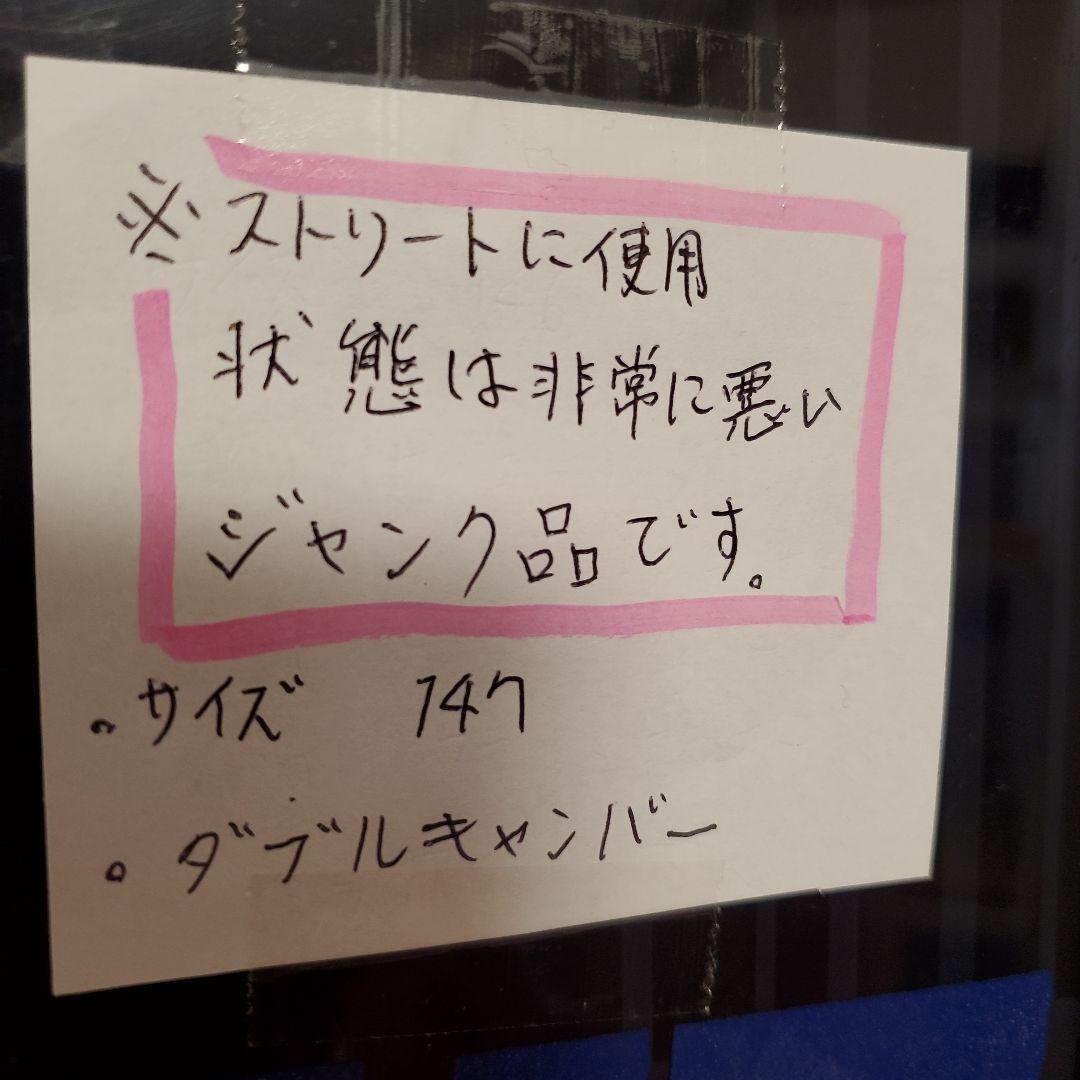 ※ストリートに使用
状態は非常に悪い
ジャンク品です。
・サイズ 147
・ダブルキャンバー